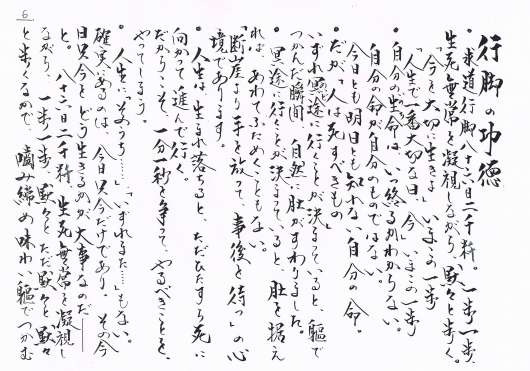 行脚の功徳
・求道行脚八十六日二千粁。一歩一歩、
生死無常を凝視しながら、黙々と歩く。
「今を大切に生きよ」いまの一歩
「人生で一番大切な日、今」いまの一歩
・自分の生命は、いつ終るかわからない。
自分の命が自分のものではない。
今日とも明日とも知れない自分の命。
だが「人は死すべきもの」
いずれ冥途に行くことが決まっていると、軀で
つかんだ瞬間、自然に肚がすわりました。
・冥途に行くことが決まっていると、肚を据え
れば、あわてふためくこともない。
「断崖より手を放って、事後を待つ」の心
境であります。
・人生は、生まれ落ちると、ただひたすら死に
向かって進んで行く。
だからこそ、一分一秒を争って、やるべきことを、
やってしまう。
・人生に「そのうち……」「いずれまた……」もない。
確実にあるのは、今日只今だけであり、その今
日只今をどう生きるかが大事なのだ——
と。八十六日二千粁、生死無常を凝視し
ながら、一歩一歩、黙々と、ただ黙々
と歩くなかで、嚙み締め味わい軀でつかむ
6